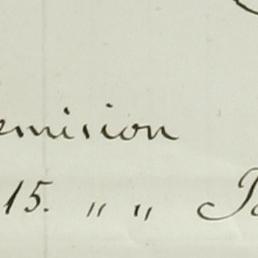 emision
15. " "